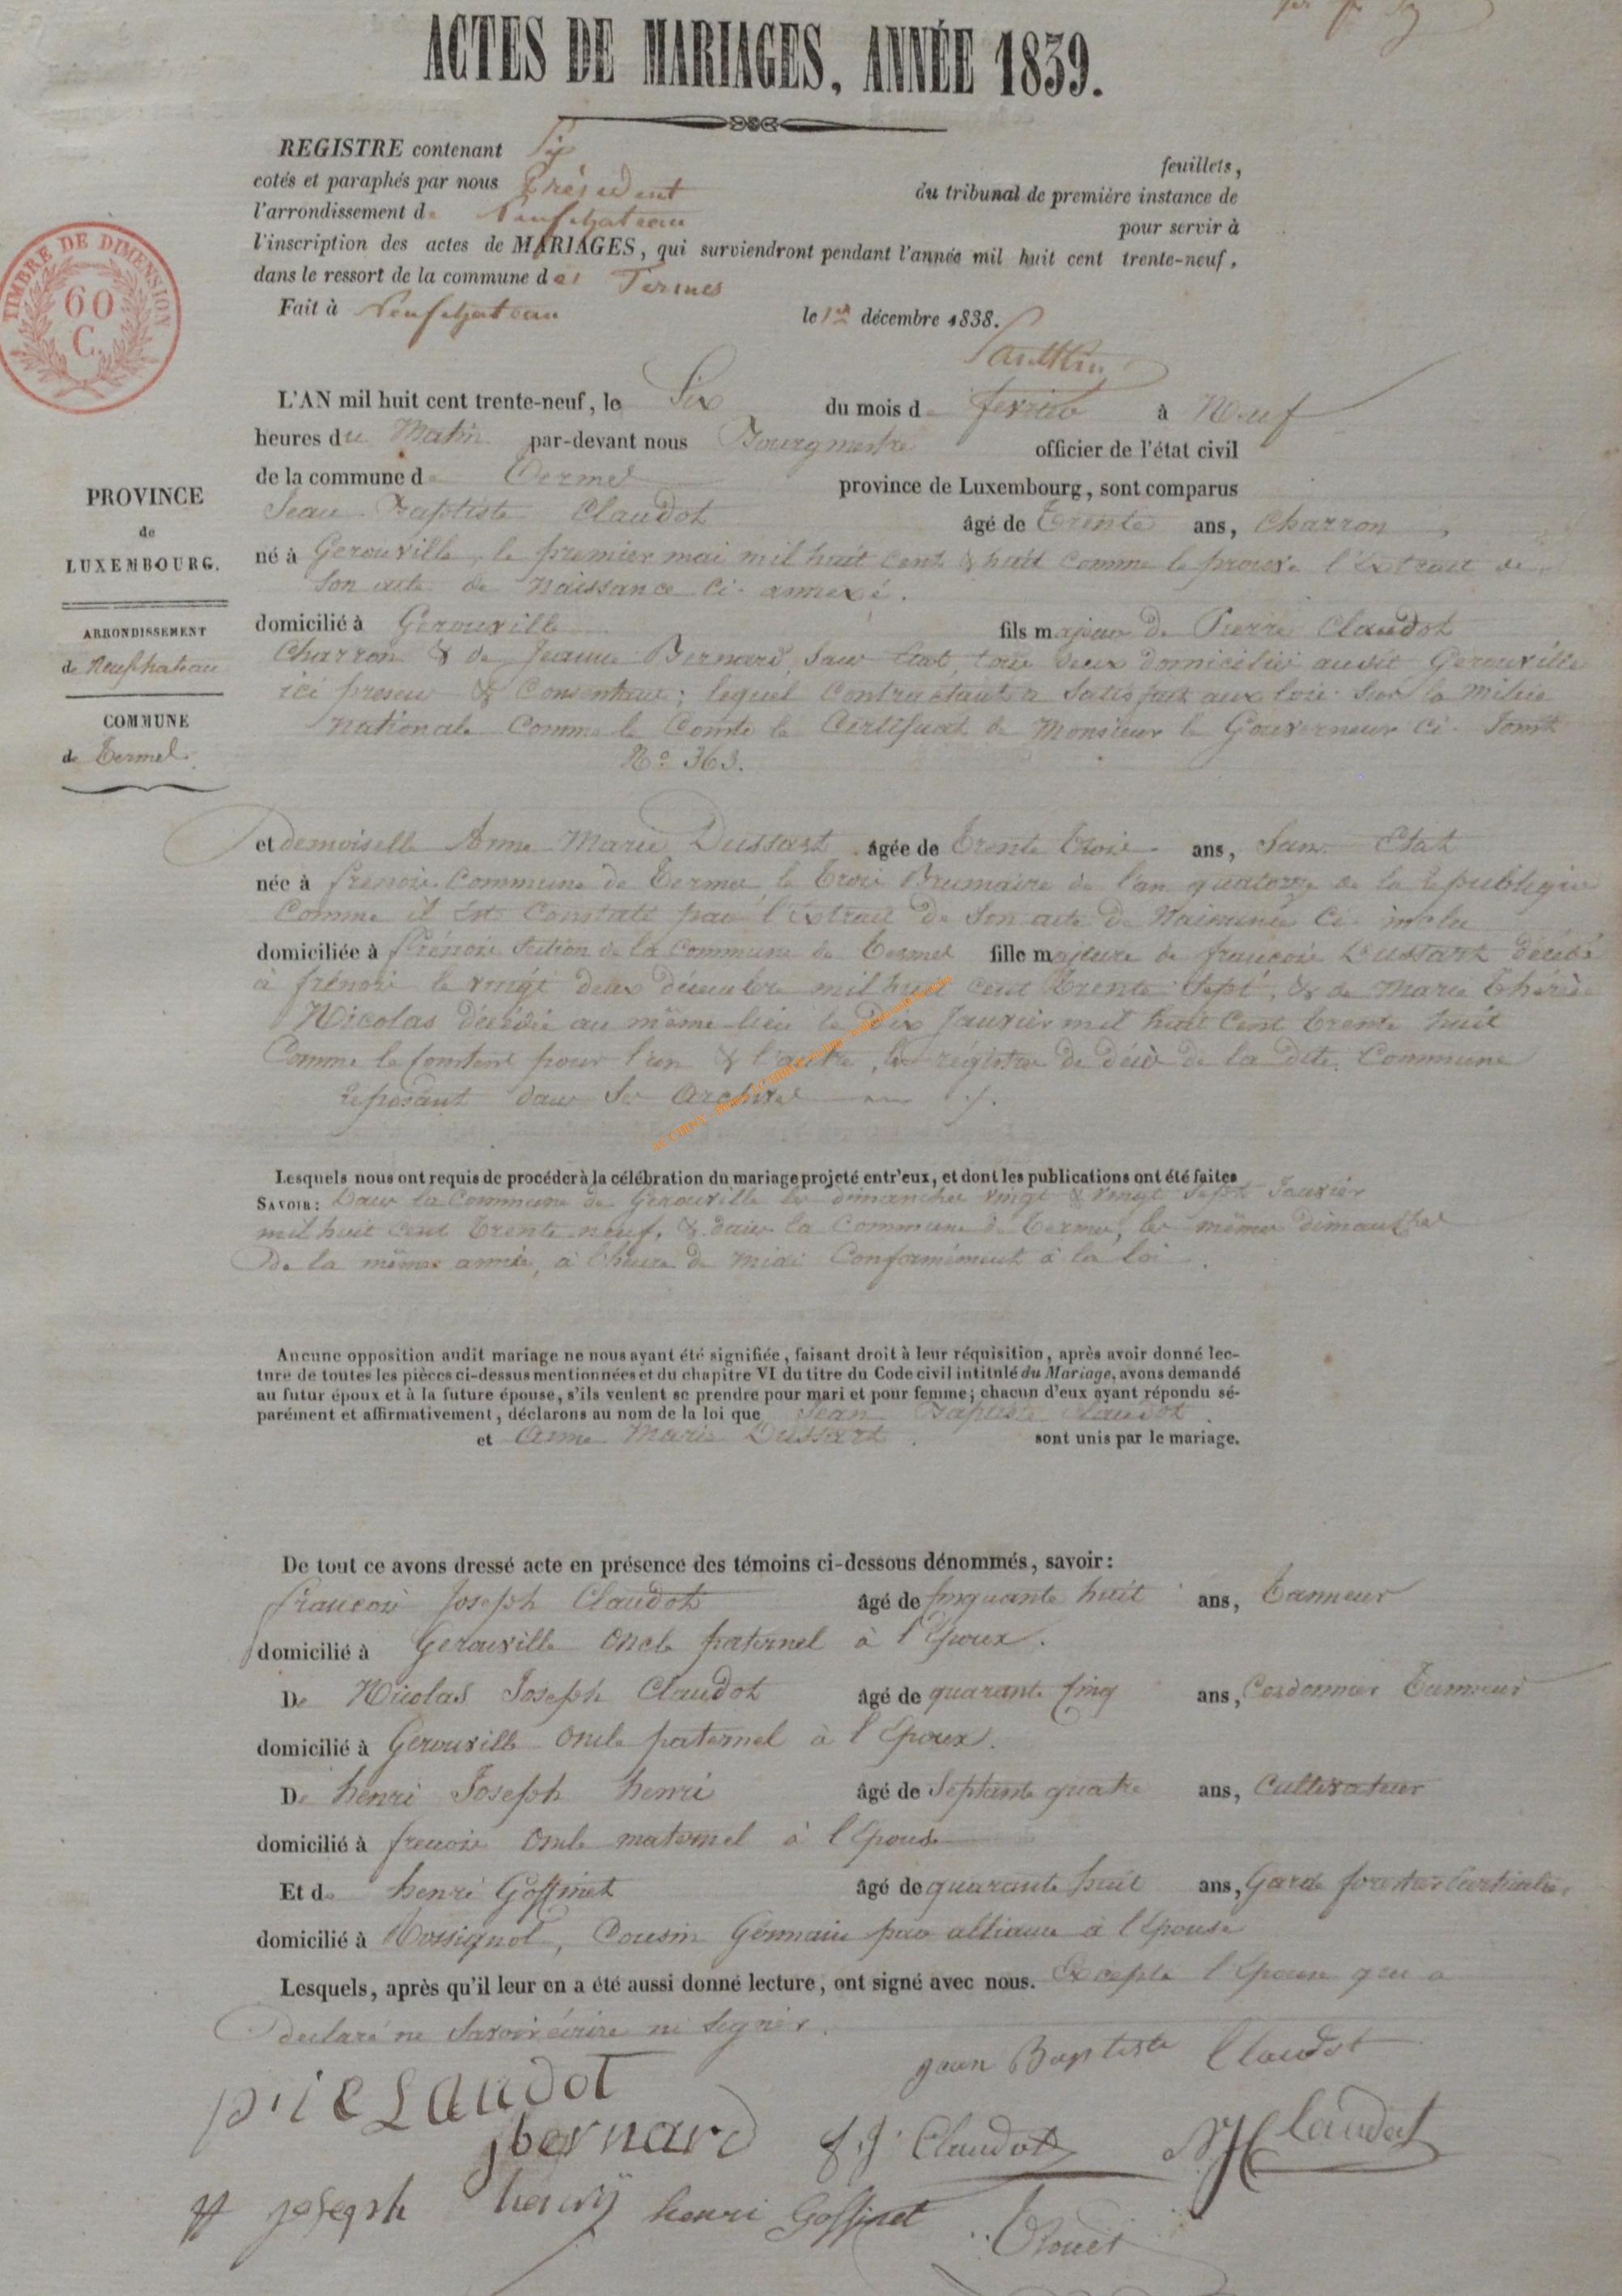 ACTES DE MARIAGES, ANNÉE 1839.
REGISTRE contenant Six feuillets,
cotés et paraphés par nous Président du tribunal de première instance de
l'arrondissement de Neufchateau pour servir à
l'inscription des actes de MARIAGES, qui surviendront pendant l'année mil huit cent trente-neuf,
dans le ressort de la commune des Termes
Fait à Neufchateau le 1er décembre 1838.
TIMBRE DE DIMENSION
60
C.
L'AN mil huit cent trente-neuf, le Six du mois de fevrier à Neuf
heures du Matin par-devant nous Bourgmestre officier de l'état civil
de la commune de Termes province de Luxembourg, sont comparus
Jean Baptiste Claudot âgé de Trente ans, Charron
né à Gerouville, le premier mai mil huit cent & huit comme le prouve l'Extrait de
Son acte de Naissance ci-annexé.
domicilié à Gerouville fils majeur de Pierre Claudot
Charron & de Jeanne Bernard, Sans Etat, tous deux domiciliés audit Gerouville
ici présens & Consentans; lequel Contractant a Satisfait aux lois Sur la Milice
nationale Comme le Conste le Certificat de Monsieur le Gouverneur Ci-Joint
No 363.
PROVINCE
de
LUXEMBOURG.
ARRONDISSEMENT
de Neufchateau
COMMUNE
de Termes
et demoiselle Anne Marie Dussart âgée de Trente Trois ans, Sans Etat
née à frenois Commune de Termes le Trois Brumaire de l'an quatorze de la république
Comme il est Constaté par l'Extrait de Son acte de Naissance Ci-inclu
domiciliée à frénois Section de la Commune de Termes fille majeure de francois Dussart décédé
à frénois le vingt deux décembre mil huit cent trente Sept, & de Marie Thérèse
Nicolas décédée au même lieu le Dix Janvier mil huit Cent trente huit
Comme le Constent pour l'un & l'autre, les régistres de décès de la dite Commune
reposant dans Ses Archives
Lesquels nous ont requis de procéder à la célébration du mariage projeté entr'eux, et dont les publications ont été faites
SAVOIR: Dans la Commune de Gerouville les dimanches vingt & vingt Sept Janvier
mil huit cent trente neuf, & dans la Commune de Termes, les mêmes dimanches
de la même année, à l'heure de midi Conformément à la loi.
Aucune opposition audit mariage ne nous ayant été signifiée, faisant droit à leur réquisition, après avoir donné lec-
ture de toutes les pièces ci-dessus mentionnées et du chapitre VI du titre du Code civil intitulé du Mariage, avons demandé
au futur époux et à la future épouse, s'ils veulent se prendre pour mari et pour femme; chacun d'eux ayant répondu sé-
parément et affirmativement, déclarons au nom de la loi que Jean Baptiste Claudot
et Anne Marie Dussart. sont unis par le mariage.
De tout ce avons dressé acte en présence des témoins ci-dessous dénommés, savoir:
francois Joseph Claudot âgé de Cinquante huit ans, Tanneur
domicilié à Gerouville Oncle paternel à l'Epoux.
De Nicolas Joseph Claudot âgé de quarante Cinq ans, Cordonnier Tanneur
domicilié à Gerouville Oncle paternel à l'Epoux.
De henri Joseph henri âgé de Septante quatre ans, Cultivateur
domicilié à frenois Oncle maternel à l'Epouse
Et de henri Goffinet âgé de quarante huit ans, Garde forestier Particulier,
domicilié à Rossignol, Cousin Germain par alliance à l'Epouse
Lesquels, après qu'il leur en a été aussi donné lecture, ont signé avec nous. Excepté l'Epouse qui a
declaré ne Savoir écrire ni Signer.
jean Baptiste Claudot
pie Laudot
jbernard f. j. Claudot NJ Claudot
H joseph henrÿ henri Goffinet